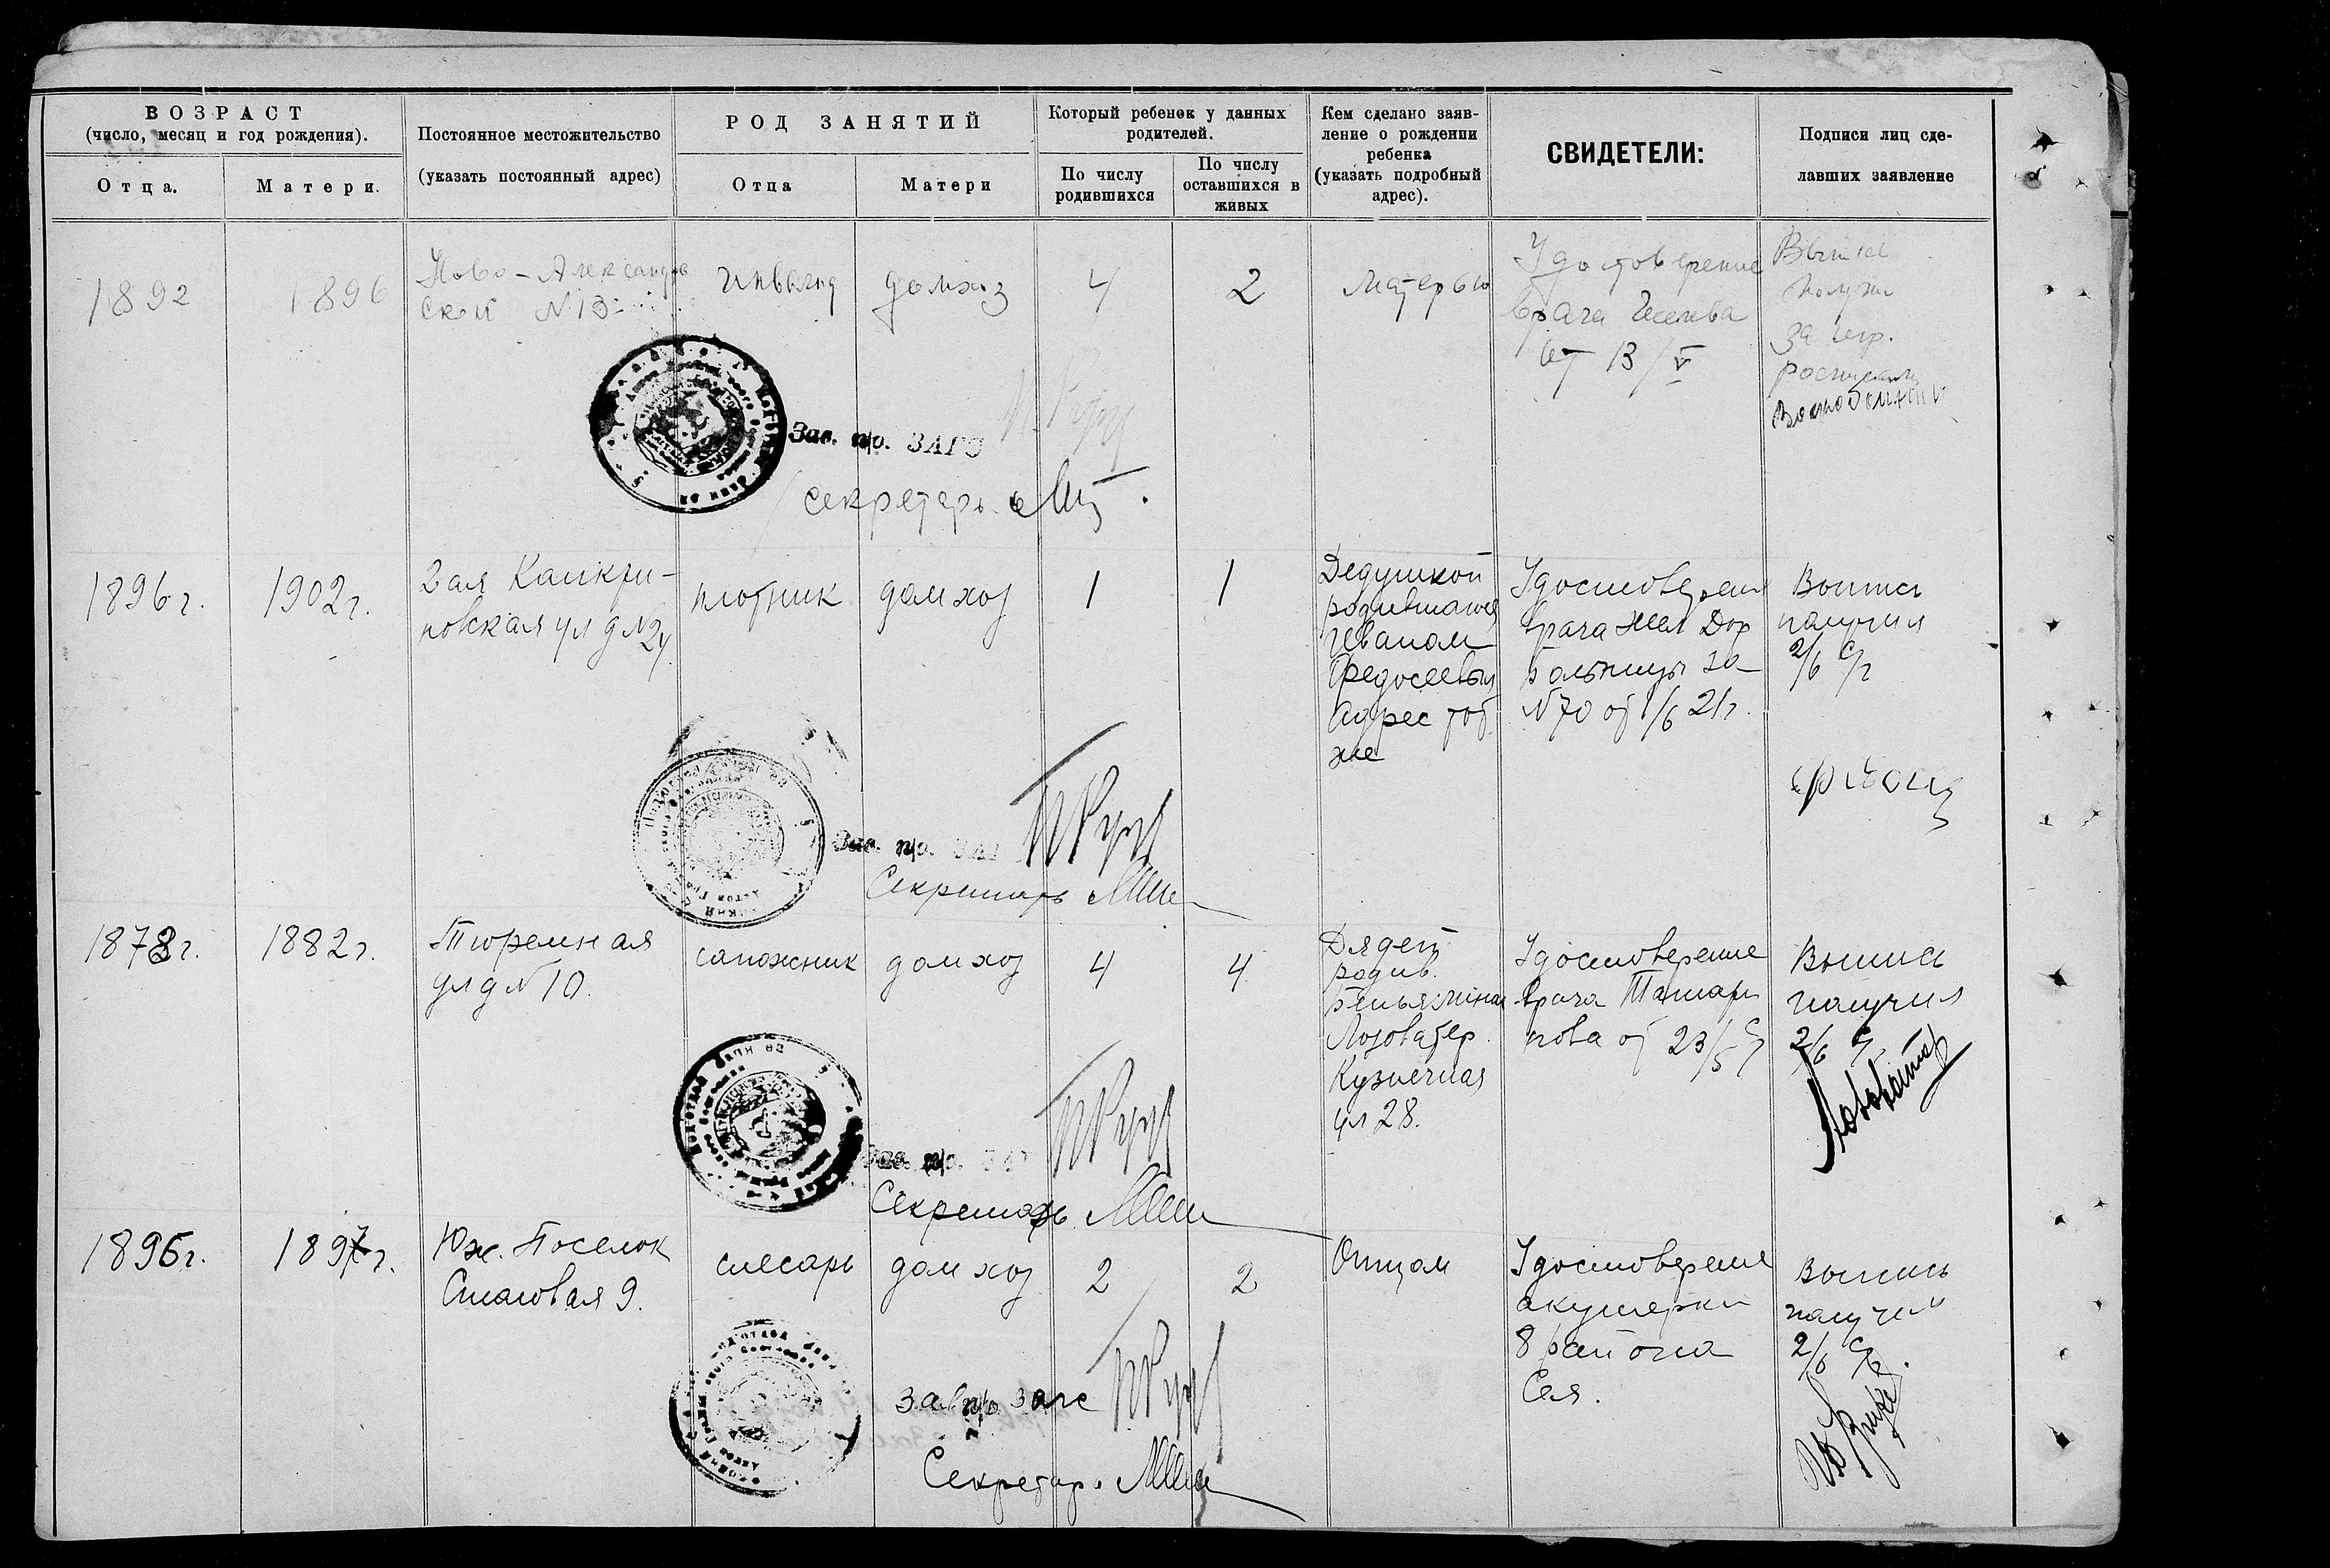 ВОЗРАСТ
(число, месяц и год рождения).
Отца.
Матери.
Постоянное местожительство
(указать постоянный адрес)
РОД ЗАНЯТИЙ
Отца
Матери
Который ребенок у данных
родителей.
По числу
родившихся
По числу
оставшихся в
живых
Кем сделано заяв-
ление о рождении
ребенка
(указать подробный
адрес).
СВИДЕТЕЛИ:
Подписи лиц сде-
лавших заявление
1892
1896
Ново-Александров
ской N 13
инвалид
домхоз
4
2
Матерью
Удостоверение
врача
от 13/V
за негр.
Зав. п/о. ЗАГС
секретарь
1896 г.
1902 г.
2ая Канкри-
новская ул д N 24
плотник
дом хоз
1
1
Дедушкой
родившагося
Иваном
Федосеевым
Адрес тот
же
Удостоверен
врача Жел Дор
больницы за
N 70 от 1/6 21 г.
Выпись
получил
2/6 с/г
Зав. п/о. ЗАГ
Секретарь
1873 г.
1882 г.
Тюремная
ул д N 10.
сапожник
дом хоз
4
4
Дядей
родив.
Беньямином
Лозоватер
Кузнечная
ул 28.
Удостоверение
врача
нова от 23/5 с/г
Выпись
получил
2/6 с/г
Зав. п/о. ЗАГ
Секретарь
1895 г.
1897 г.
Юж. Поселок
9.
слесарь
дом хоз
2
2
Отцом
Удостоверение
акушерки
8 района
Выпись
получил
2/6 с/г.
Зав п/о Загс
Секретарь